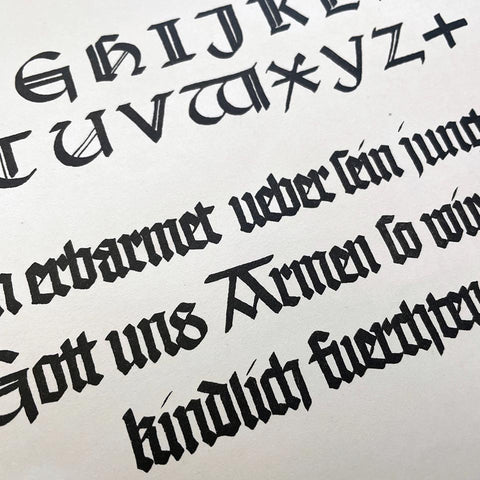 GHIJK
TUVWXYZ+
erbarmet ueber ſein
Gott uns Armen ſo wir
kindlich fuerchten